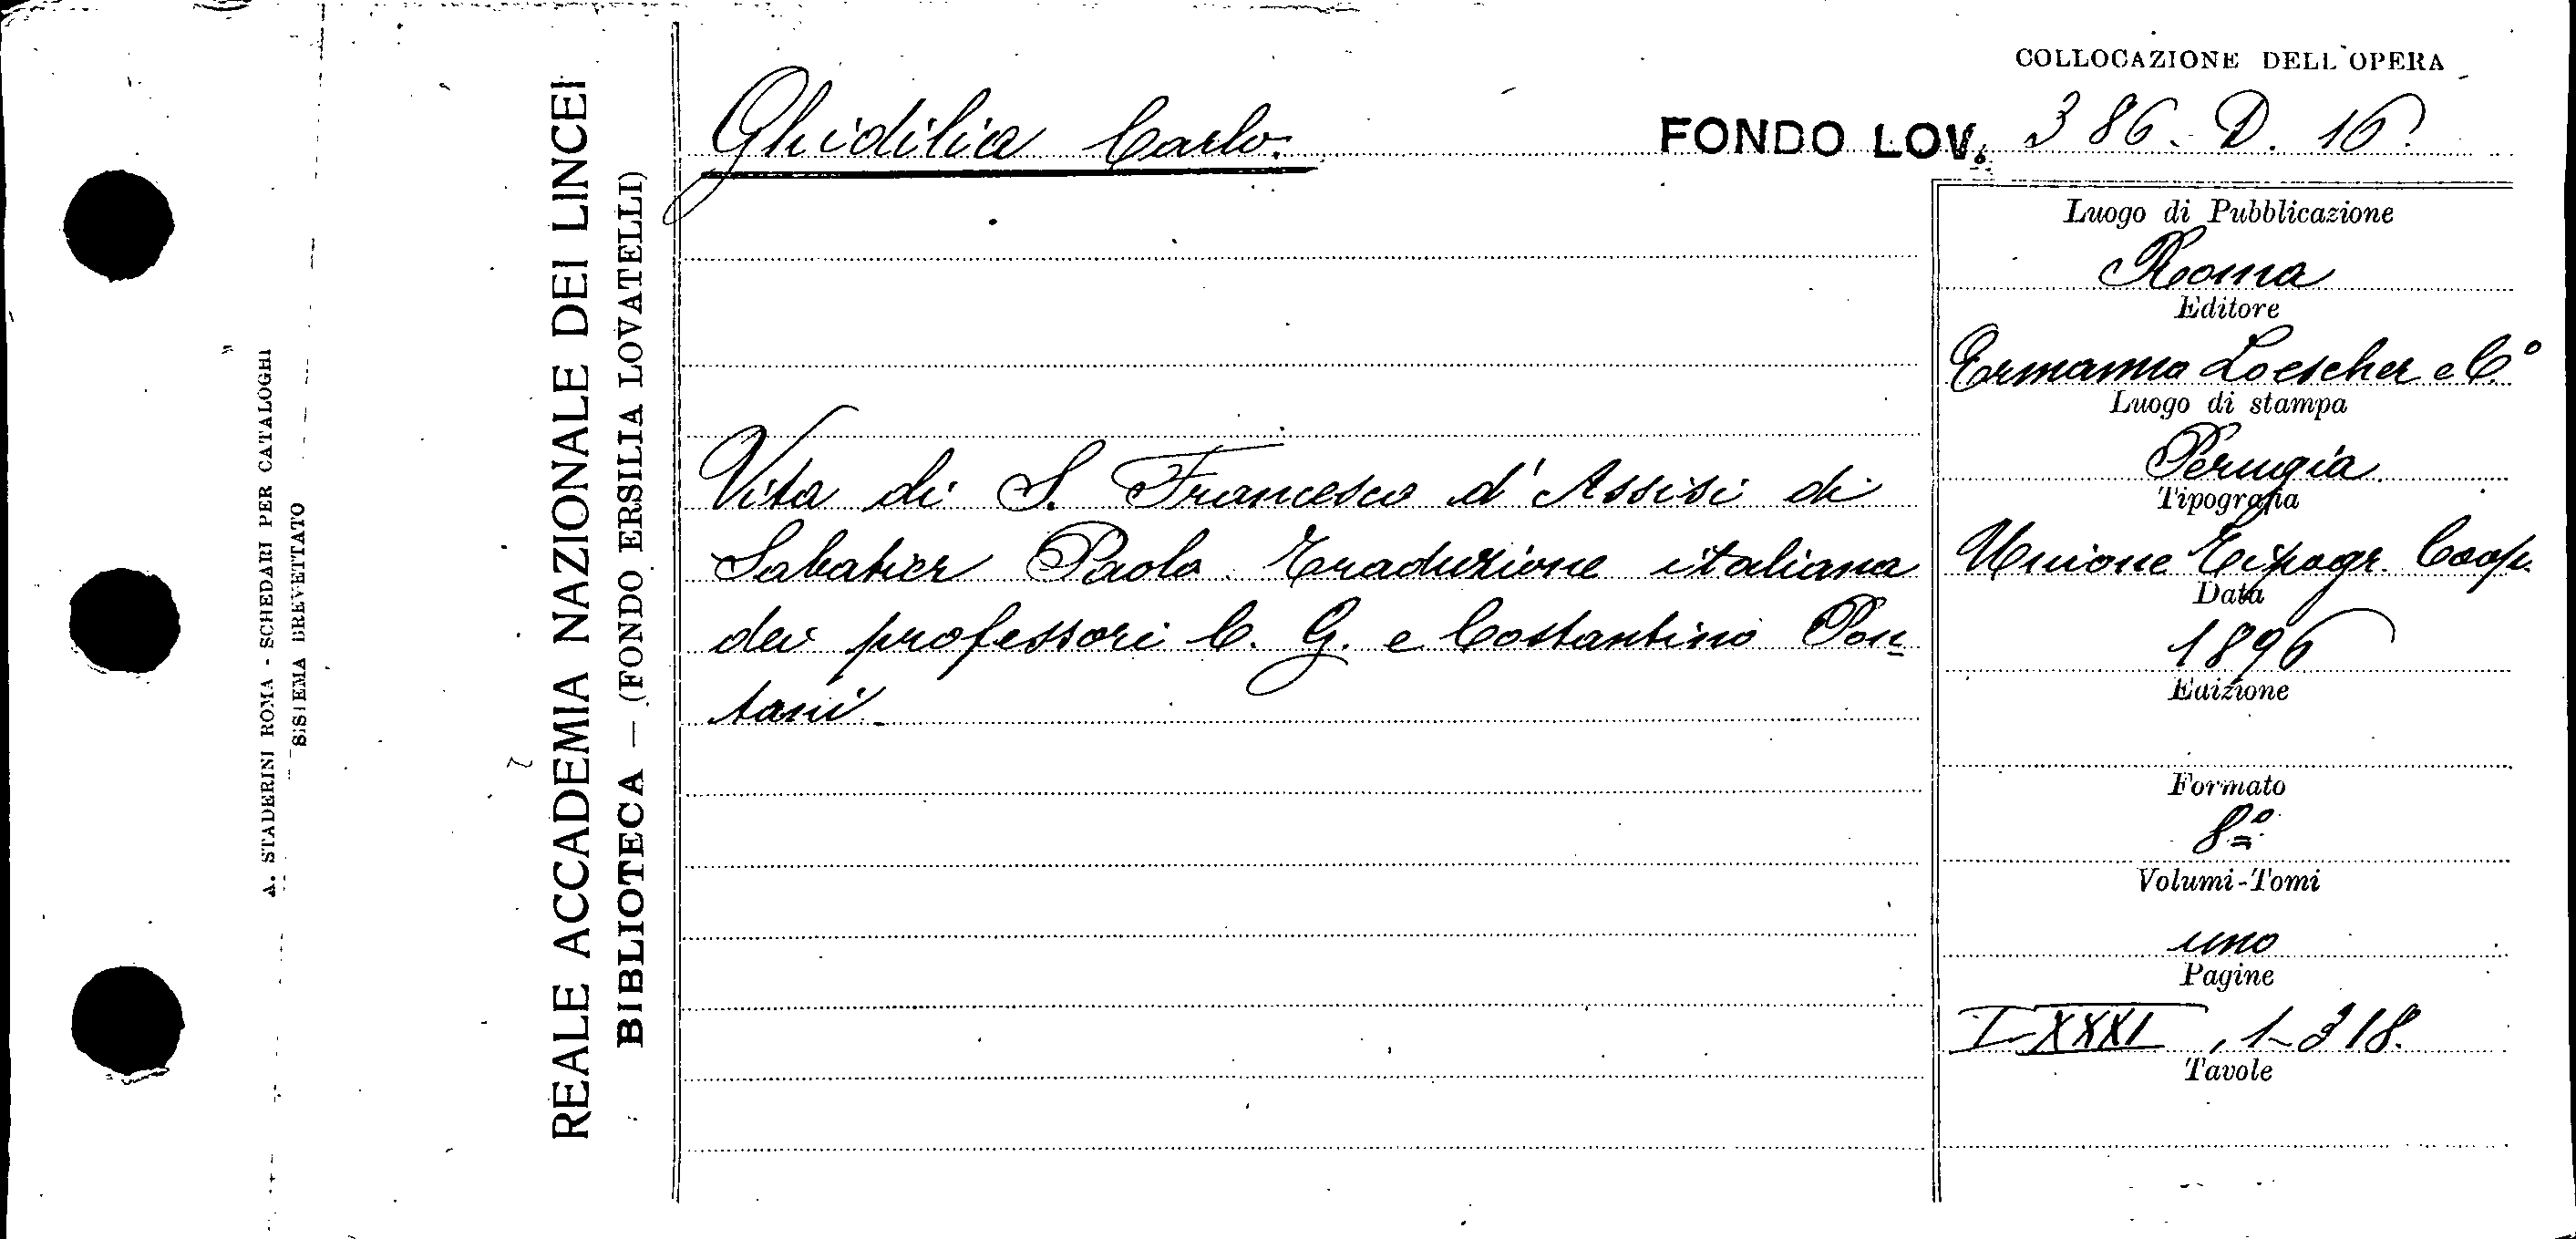 COLLOCAZIONE DELL'OPERA
Ghidilia Carlo.
FONDO LOV. 386. D. 16.
A. STADERINI ROMA - SCHEDARI PER CATALOGHI
SISTEMA BREVETTATO
REALE ACCADEMIA NAZIONALE DEI LINCEI
BIBLIOTECA — (FONDO ERSILIA LOVATELLI)
Vita di S. Francesco d'Assisi di
Sabatier Paolo. Traduzione italiana
dei professori C. G. e Costantino Pon=
tani.
Luogo di Pubblicazione
Roma
Editore
Ermanno Loescher e C.°
Luogo di stampa
Perugia
Tipografia
Unione Tipogr. Coop.
Data
1896
Edizione
Formato
8°
Volumi-Tomi
uno
Pagine
I-XXXI, 1-318.
Tavole